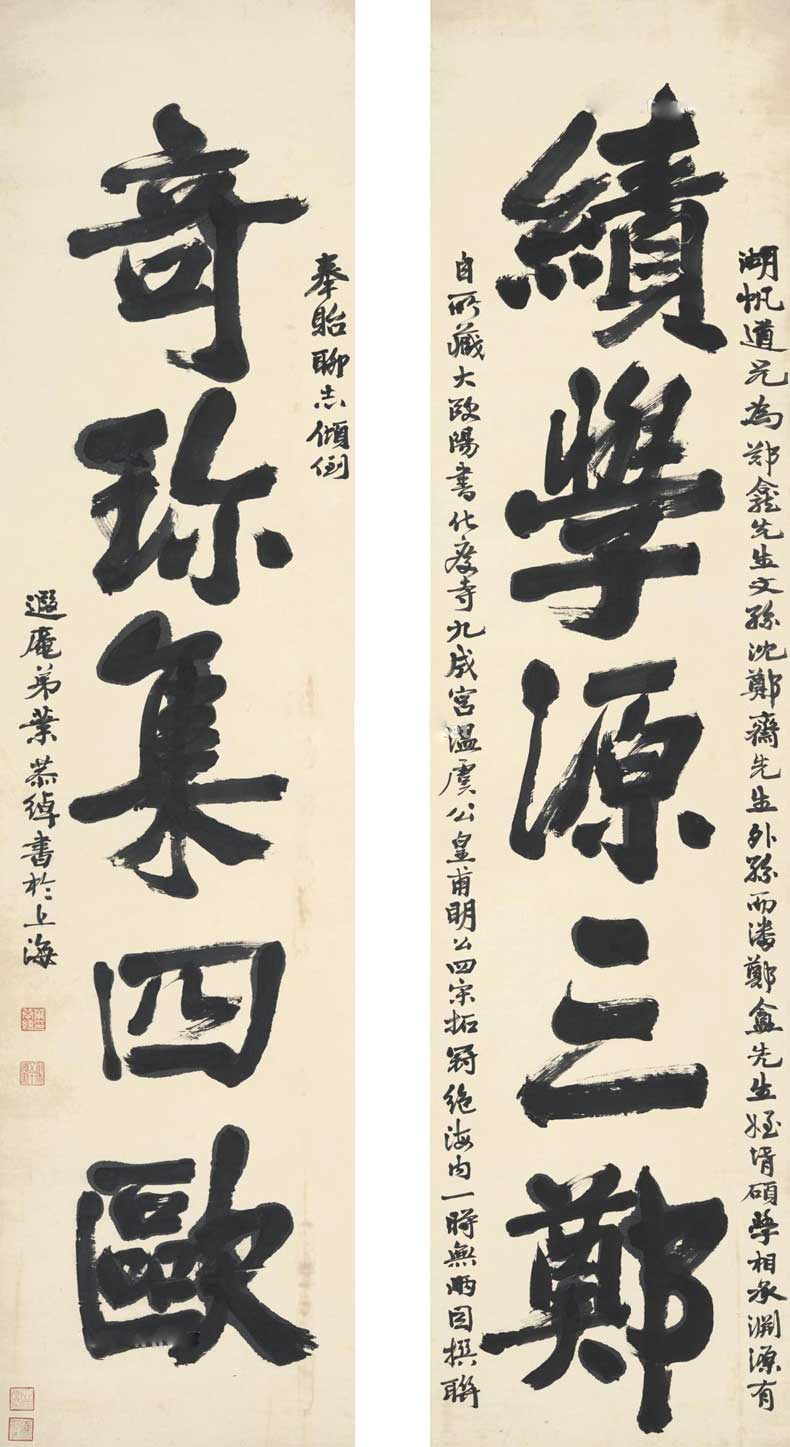 績學源三鄭
湖帆道兄為鄭龕先生文孫沈鄭齋先生外孫而潘鄭盦先生姪壻碩學相承淵源有
自所藏大歐陽書化度寺九成宮溫虞公皇甫明公四宋拓冠絕海內一時無兩因撰聯
奇珍集四歐
奉貽聊志傾倒
遐庵弟葉恭綽書於上海